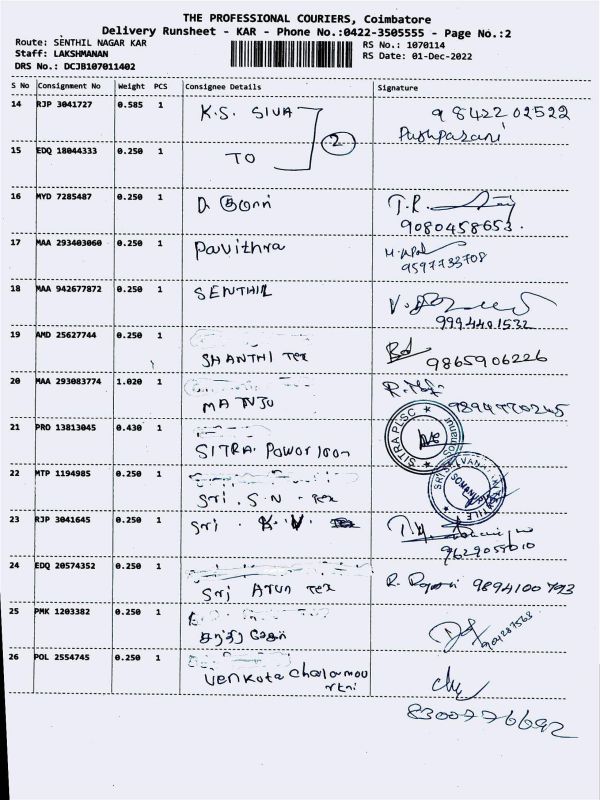 THE PROFESSIONAL COURIERS, Coimbatore
Delivery Runsheet - KAR - Phone No.:0422-3505555 - Page No.:2
Route: SENTHIL NAGAR KAR
RS No.: 1070114
Staff: LAKSHMANAN
RS Date: 01-Dec-2022
DRS No.: DCJB107011402
S No Consignment No Weight PCS Consignee Details Signature
14 RJP 3041727 0.585 1 K.S. SIVA 9842202522
Pushparani
15 EDQ 18044333 0.250 1 TO 2
16 MYD 7285487 0.250 1 D. T.R.
9080458653.
17 MAA 293403060 0.250 1 Pavithra
9597733708
18 MAA 942677872 0.250 1 SENTHIL
9994401532
19 AMD 25627744 0.250 1
SHANTHI Tex 9865906226
20 MAA 293083774 1.020 1
MANJU 9894770245
21 PRO 13813045 0.430 1
SITRA. Power loom
SITRA PLSC
22 MTP 1194985 0.250 1
Sri. S.N. Tex
SOMANUR
23 RJP 3041645 0.250 1 Sri. K.V. Tex
24 EDQ 20574352 0.250 1
Sri Arun Tex R. 9894100793
25 PMK 1203382 0.250 1
26 POL 2554745 0.250 1
Venkatachalamou
rtni
8300776692